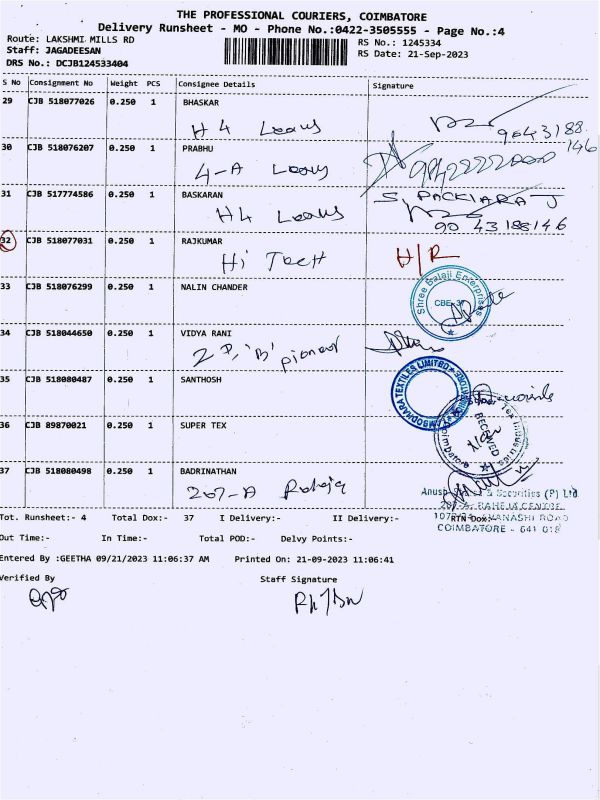 THE PROFESSIONAL COURIERS, COIMBATORE
Delivery Runsheet - MO - Phone No.:0422-3505555 - Page No.:4
Route: LAKSHMI MILLS RD
RS No.: 1245334
Staff: JAGADEESAN
RS Date: 21-Sep-2023
DRS No.: DCJB124533404
S No Consignment No Weight PCS Consignee Details Signature
29 CJB 518077026 0.250 1 BHASKAR
H4 Loans 9043188146
30 CJB 518076207 0.250 1 PRABHU
4-A Loans
31 CJB 517774586 0.250 1 BASKARAN S. PACKIARAJ
H4 Loans 9043188146
32 CJB 518077031 0.250 1 RAJKUMAR H/R
Hi Tech
33 CJB 518076299 0.250 1 NALIN CHANDER
Shree Balaji Enterprises
CBE-37
34 CJB 518044650 0.250 1 VIDYA RANI
2P, 'B' pioneer
35 CJB 518080487 0.250 1 SANTHOSH
TEXTILES LIMITED
36 CJB 89870021 0.250 1 SUPER TEX
RECEIVED
37 CJB 518080498 0.250 1 BADRINATHAN
207-A Raheja
Securities (P) Ltd
RAHEJA CENTRE
COIMBATORE - 641 018
Tot. Runsheet:- 4 Total Dox:- 37 I Delivery:- II Delivery:- RTN Dox:-
Out Time:- In Time:- Total POD:- Delvy Points:-
Entered By :GEETHA 09/21/2023 11:06:37 AM Printed On: 21-09-2023 11:06:41
Verified By Staff Signature